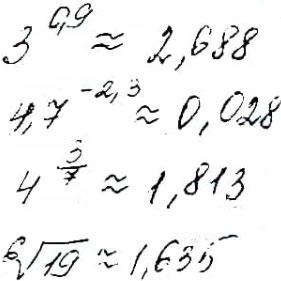 3^{0,9} ≈ 2,688
4,7^{-2,3} ≈ 0,028
4^{3/7} ≈ 1,813
⁶√19 ≈ 1,635